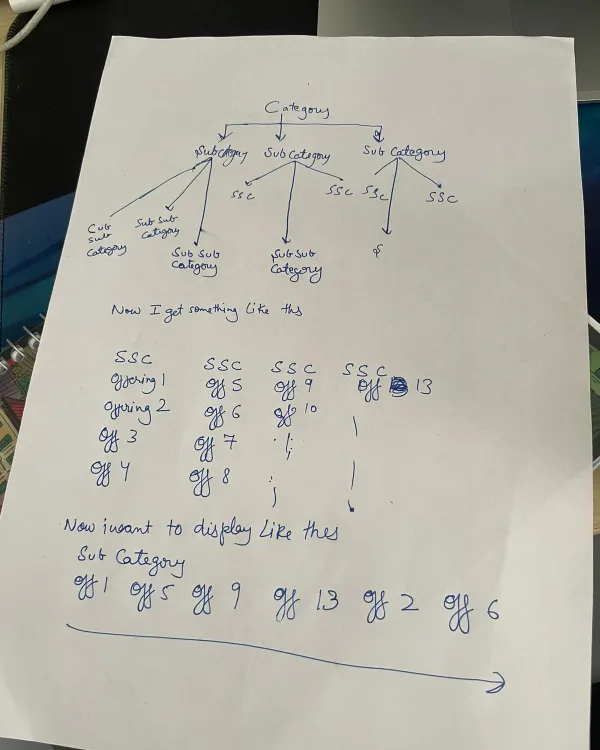 Category
Sub Category Sub Category Sub Category
SSC SSC SSC SSC
Cub Sub Sub
sub Category
Category
Sub Sub Sub Sub $
Category Category
Now I get something like ths
SSC SSC SSC SSC
offering 1 off 5 off 9 off 13
offering 2 off 6 off 10
off 3 off 7
off 4 off 8
Now i want to display like thes
Sub Category
off 1 off 5 off 9 off 13 off 2 off 6